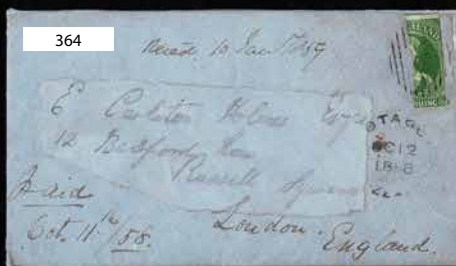 364
Recd. 10 Jan 1859
E Carleton Holmes Esqre
12 Bedford Row
Russell Square
London.
England.
Paid
Oct. 11th/58.
OC12
1858